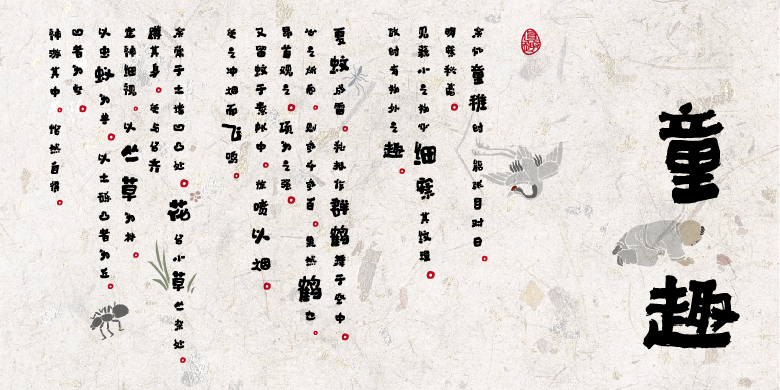 童趣
余忆童稚时 能张目对日。
明察秋毫。
见藐小之物必细察其纹理。
故时有物外之趣。
夏蚊成雷。私拟作群鹤舞于空中。
心之所向 则或千或百。果然鹤也。
昂首观之。项为之强。
又留蚊于素帐中。徐喷以烟。
使之冲烟而飞鸣。
余常于土墙凹凸处。花台小草丛杂处。
蹲其身。使与台齐
定神细视。以丛草为林。
以虫蚁为兽。以土砾凸者为丘。
凹者为壑。
神游其中。怡然自得。